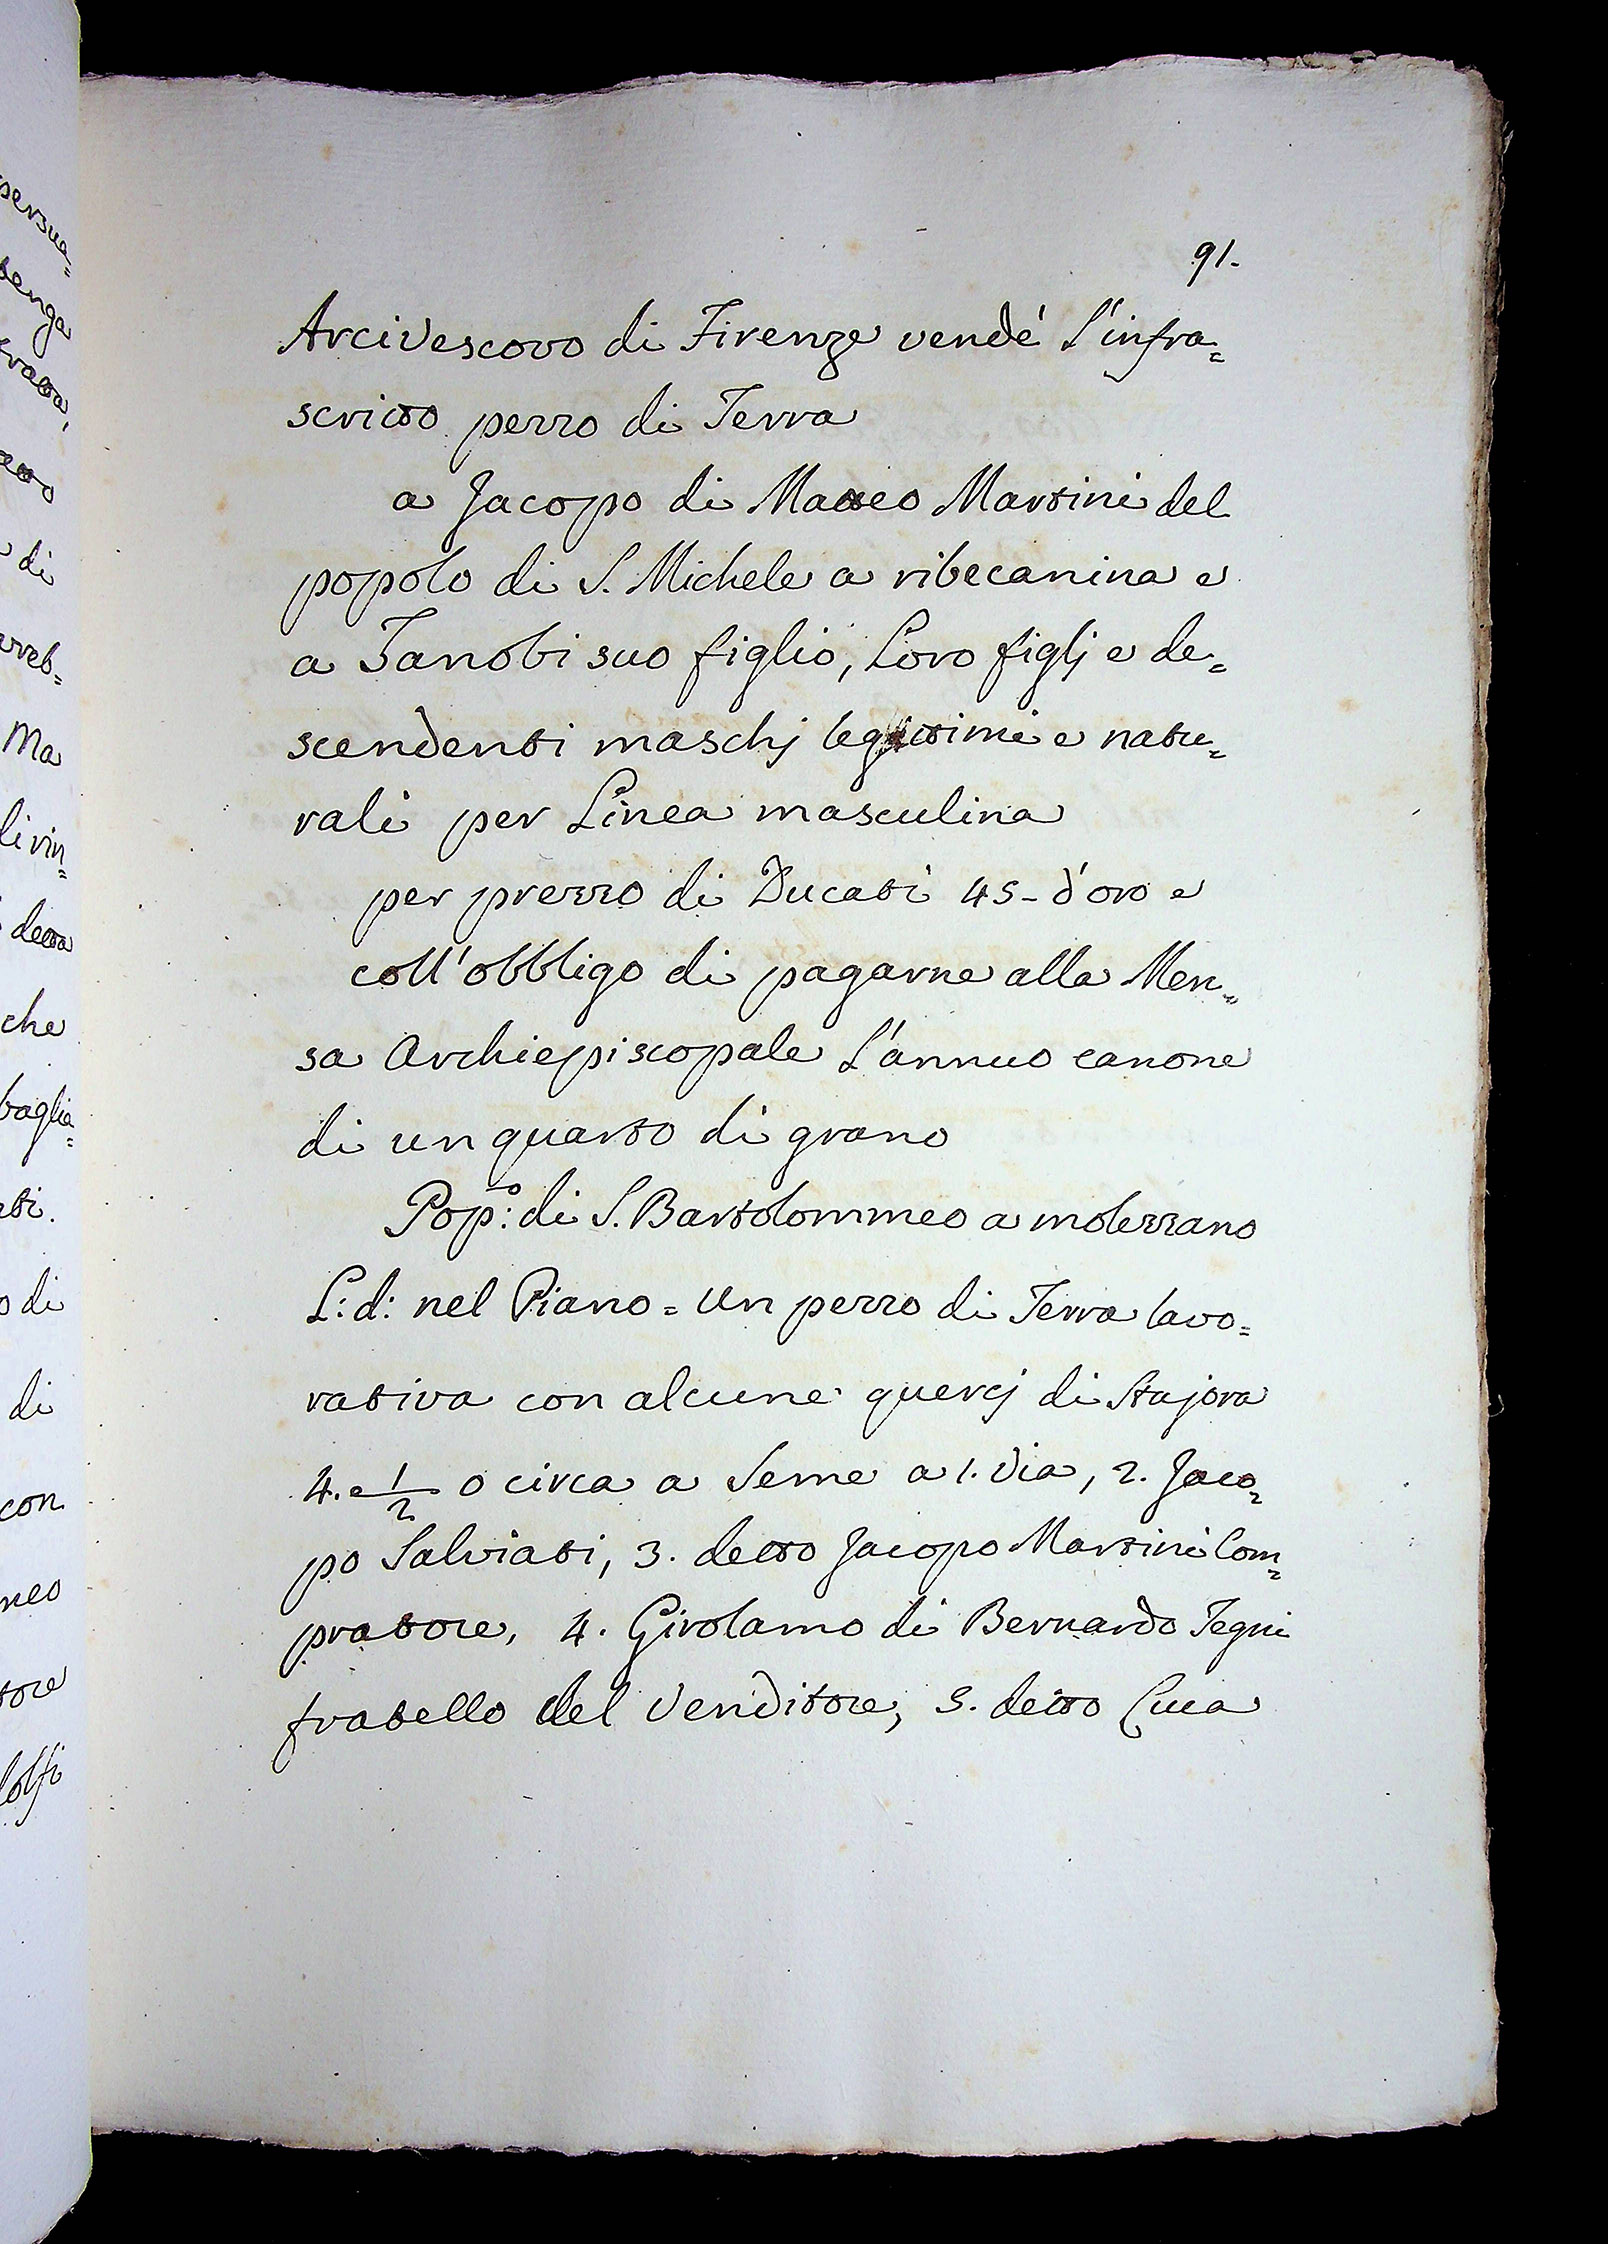 91.
Arcivescovo di Firenze vendé l'infra=
scritto pezzo di Terra
a Jacopo di Matteo Martini del
popolo di S. Michele a ribecanina e
a Zanobi suo figlio, Loro figlj e de=
scendenti maschj legittimi e natu=
rali per Linea masculina
per prezzo di Ducati 45- d'oro e
coll'obbligo di pagarne alla Men=
sa Archiepiscopale l'annuo canone
di un quarto di grano
Pop.º: di S. Bartolommeo a molezzano
L: d: nel Piano = Un pezzo di Terra lavo=
rativa con alcune quercj di Stajora
4. e 1/2 o circa a Seme a 1. Via, 2. Jaco=
po Salviati, 3. detto Jacopo Martini Com=
pratore, 4. Girolamo di Bernardo Tegni
fratello del Venditore, 5. detto Luca
persua=
di
Ma
detta
che
di
di
con